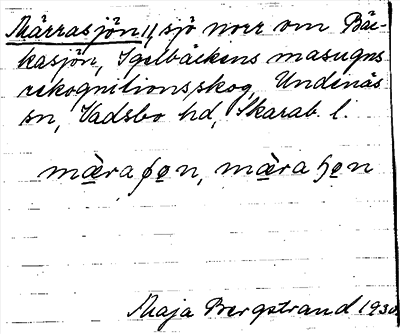 Märrasjön, sjö norr om Bäc-
kasjön, Igelbäckens masugns
rekognitionsskog, Undenäs
sn, Vadsbo hd, Skarab. l.
mæ̀raɧøn, mæ̀raɧøn
Maja Bergstrand 1930